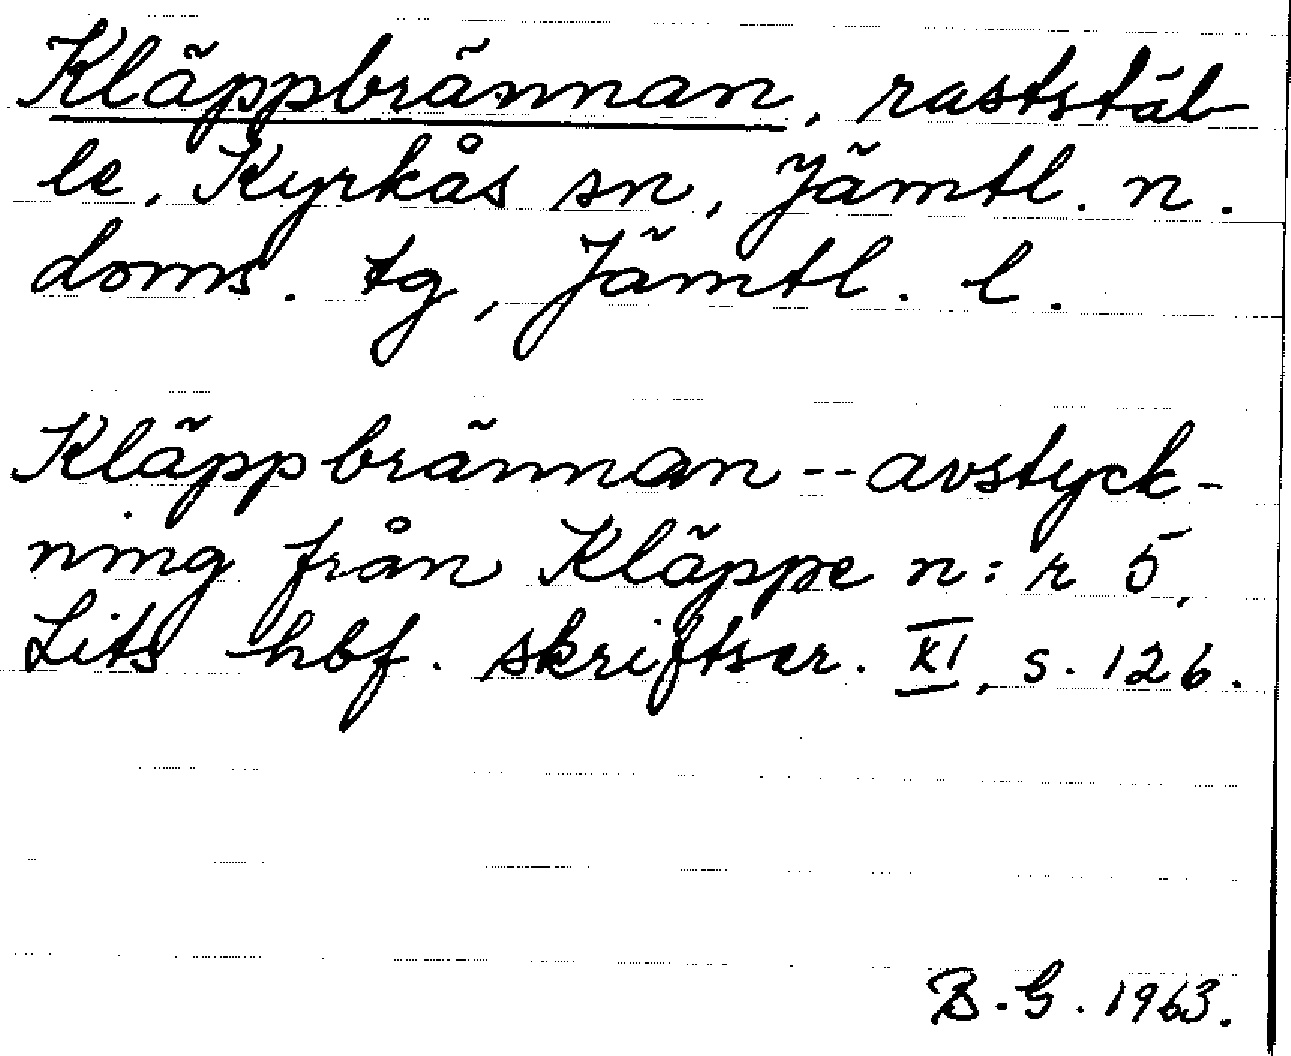 Kläppbrännan, rastställ-
le, Kyrkås sn, Jämtl. n.
doms. tg, Jämtl. l.
Kläppbrännan -- avstyck-
ning från Kläppe n:r 5,
Lits hbf. skriftser. XI, s. 126.
B.G. 1963.